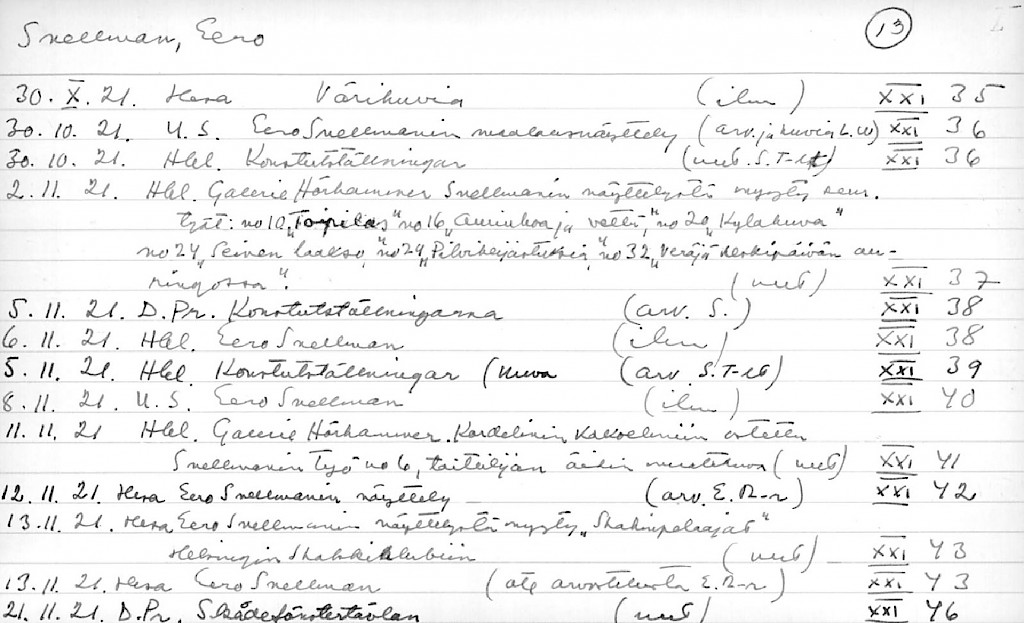 Snellman, Eero 13 I
30. X. 21. Hera Värikuvia (ilm) XXI 35
30. 10. 21. U.S. Eero Snellmanin maalausnäyttely (arv. ja kuvia L.W) XXI 36
30. 10. 21. Hbl. Konstutställningar (uut. S.T-lt) XXI 36
2. 11. 21. Hbl. Galerie Hörhammer Snellmanin näyttelystä myyty seur.
työt: no 10 „Toipilas" no 16 „Aurinkoa ja vettä," no 20 „Kyläkuva"
no 24 „Seinen laakso," no 29 „Pilviheijastuksia," no 32 „Veräjä keskipäivän au-
ringossa". (uut) XXI 37
5. 11. 21. D.Pr. Konstutställningarna (arv. S.) XXI 38
6. 11. 21. Hbl. Eero Snellman (ilm) XXI 38
5. 11. 21. Hbl. Konstutställningar (kuva (arv S.T-lt) XXI 39
8. 11. 21. U.S. Eero Snellman (ilm) XXI 40
11. 11. 21 Hbl. Galerie Hörhammer. Kordelinin kokoelmiin ostettu
Snellmanin työ no 6, taiteilijan äidin muotokuva (uut) XXI 41
12. 11. 21. Hera Eero Snellmanin näyttely (arv. E.R-r) XXI 42
13. 11. 21. Hera Eero Snellmanin näyttelystä myyty „Shakinpelaajat"
Helsingin Shakkiklubiin (uut) XXI 43
13. 11. 21. Hera Eero Snellman (ote arvostelusta E.R-r) XXI 43
21. 11. 21. D.Pr. Skådefönstertävlan (uut) XXI 46